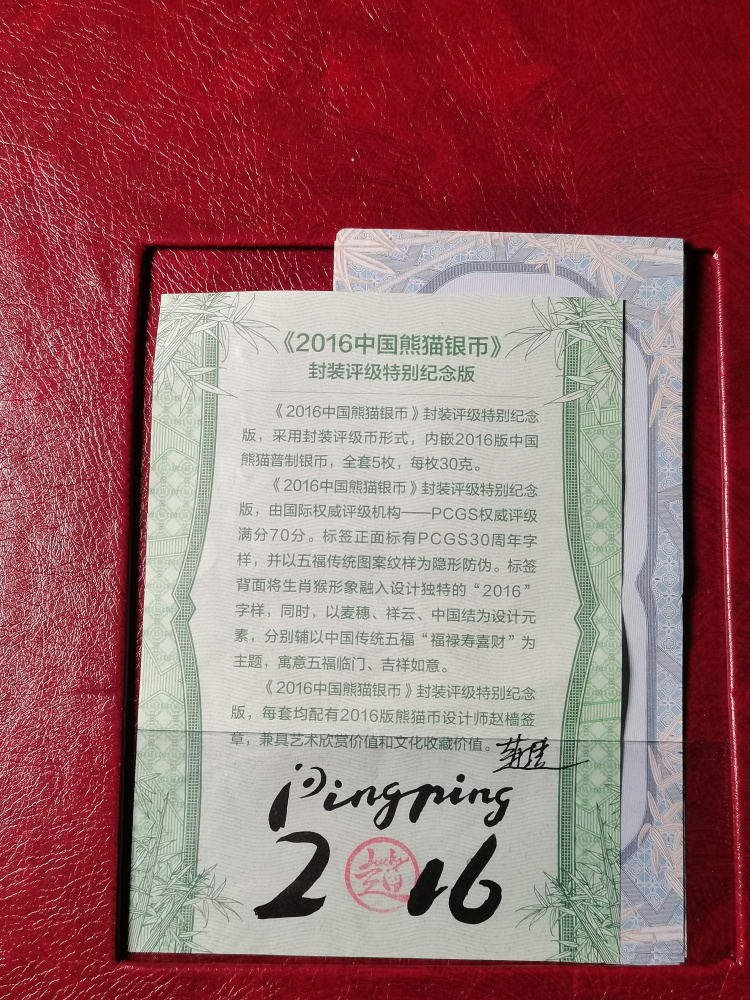 《2016中国熊猫银币》
封装评级特别纪念版
《2016中国熊猫银币》封装评级特别纪念
版，采用封装评级币形式，内嵌2016版中国
熊猫普制银币，全套5枚，每枚30克。
《2016中国熊猫银币》封装评级特别纪念
版，由国际权威评级机构——PCGS权威评级
满分70分。标签正面标有PCGS30周年字
样，并以五福传统图案纹样为隐形防伪。标签
背面将生肖猴形象融入设计独特的“2016”
字样，同时，以麦穗、祥云、中国结为设计元
素，分别辅以中国传统五福“福禄寿喜财”为
主题，寓意五福临门、吉祥如意。
《2016中国熊猫银币》封装评级特别纪念
版，每套均配有2016版熊猫币设计师赵樯签
章，兼具艺术欣赏价值和文化收藏价值。
Pingping
2016